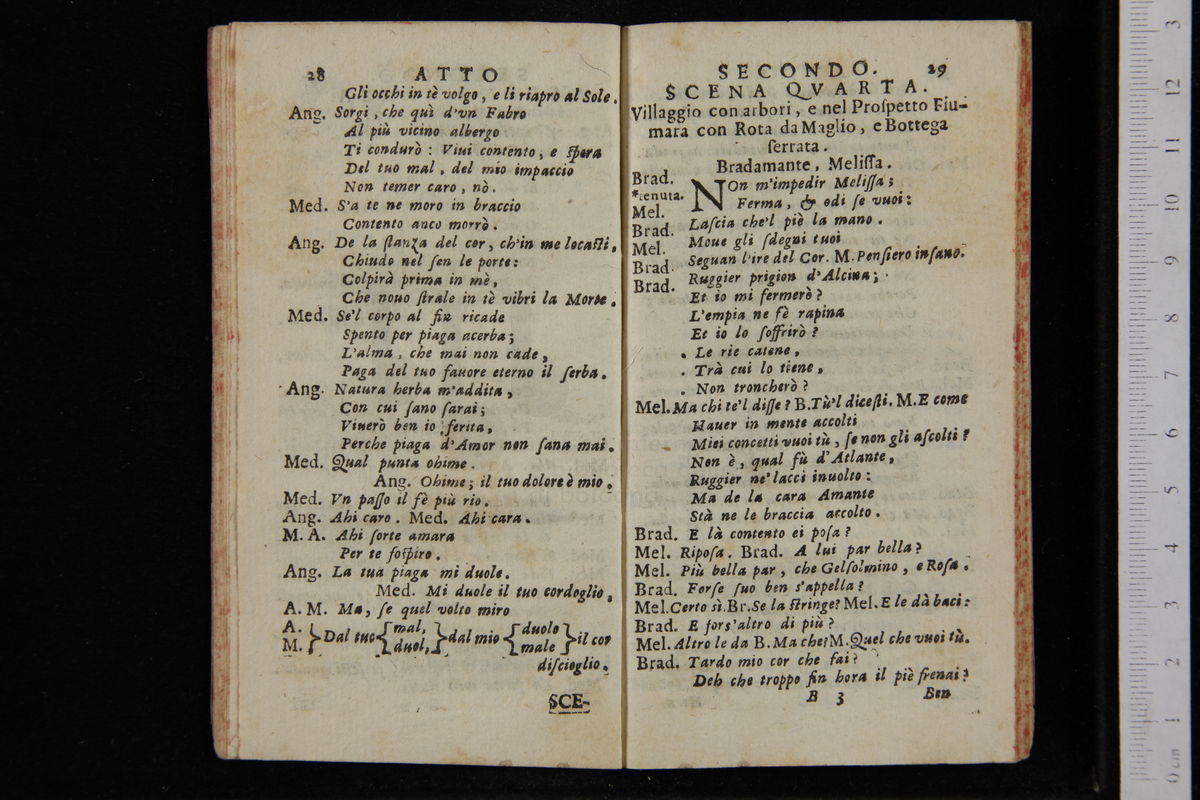 28 ATTO
Gli occhi in tè volgo, e li riapro al Sole.
Ang. Sorgi, che quì d'vn Fabro
Al più vicino albergo
Ti condurò: Viui contento, e ſpera
Del tuo mal, del mio impaccio
Non temer caro, nò.
Med. S'a te ne moro in braccio
Contento anco morrò.
Ang. De la ſtanza del cor, ch'in me locaſti,
Chiudo nel ſen le porte:
Colpirà prima in mè,
Che nouo ſtrale in tè vibri la Morte.
Med. Se'l corpo al fin ricade
Spento per piaga acerba;
L'alma, che mai non cade,
Paga del tuo fauore eterno il ſerba.
Ang. Natura herba m'addita,
Con cui ſano ſarai;
Viuerò ben io ferita,
Perche piaga d'Amor non ſana mai.
Med. Qual punta ohime.
Ang. Ohime; il tuo dolore è mio.
Med. Vn paſſo il fè più rio.
Ang. Ahi caro. Med. Ahi cara.
M. A. Ahi ſorte amara
Per te ſoſpiro.
Ang. La tua piaga mi duole.
Med. Mi duole il tuo cordoglio,
A. M. Ma, ſe quel volto miro
A. } Dal tuo { mal, } dal mio { duolo } il cor
M. } { duol, } { male }
diſcioglio.
SCE-
SECONDO. 29
SCENA QVARTA.
Villaggio con arbori, e nel Proſpetto Fiu-
mara con Rota da Maglio, e Bottega
ſerrata.
Bradamante, Meliſſa.
Brad. NOn m'impedir Meliſſa;
*tenuta. Ferma, & odi ſe vuoi:
Mel. Laſcia che'l piè la mano.
Brad. Moue gli ſdegni tuoi
Mel. Seguan l'ire del Cor. M. Penſiero inſano.
Brad. Ruggier prigion d'Alcina;
Brad. Et io mi fermerò?
L'empia ne fè rapina
Et io lo ſoffrirò?
Le rie catene,
Trà cui lo tiene,
Non troncherò?
Mel. Ma chi te'l diſſe? B. Tù'l diceſti. M. E come
Hauer in mente accolti
Miei concetti vuoi tù, ſe non gli aſcolti?
Non è, qual fù d'Atlante,
Ruggier ne' lacci inuolto:
Ma de la cara Amante
Stà ne le braccia accolto.
Brad. E là contento ei poſa?
Mel. Ripoſa. Brad. A lui par bella?
Mel. Più bella par, che Gelſolmino, e Roſa.
Brad. Forſe ſuo ben s'appella?
Mel. Certo sì. Br. Se la ſtringe? Mel. E le dà baci:
Brad. E fors'altro di più?
Mel. Altro le da B. Ma che? M. Quel che vuoi tù.
Brad. Tardo mio cor che fai?
Deh che troppo fin hora il piè frenai?
B 3 Ben